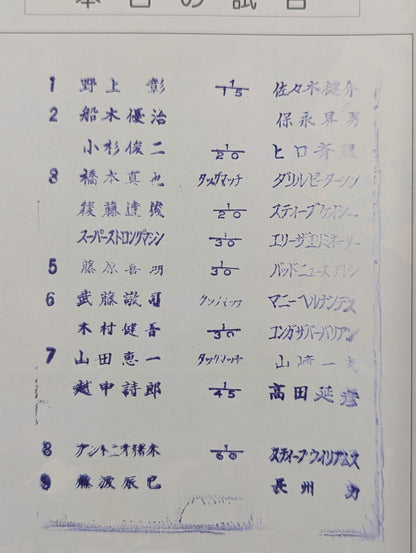 本日の試合
1 野上 彰 1/15 佐々木健介
2 船木優治 保永昇男
小杉俊二 1/20 ヒロ斉藤
3 橋本真也 タッグマッチ ダリルピーターソン
後藤達俊 1/20 スティーブ
スーパーストロングマシン 1/30 エリーザエリミネーター
5 藤原喜明 1/30 バッドニュースアレン
6 武藤敬司 タッグマッチ マニーヘルナンデス
木村健吾 1/30 コンガザバーバリアン
7 山田恵一 タッグマッチ 山崎一夫
越中詩郎 1/45 高田延彦
8 アントニオ猪木 1/60 スティーブウィリアムス
9 藤波辰巳 長州 力